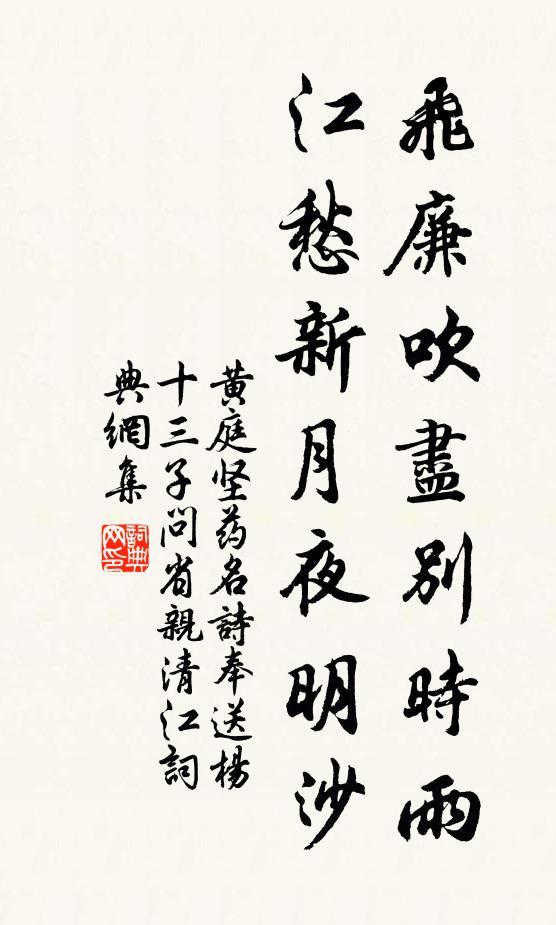 飛廉吹盡別時雨
江愁新月夜明沙
黃庭坚药名詩奉送楊
十三子問省親清江詞
典網集
詞典网印